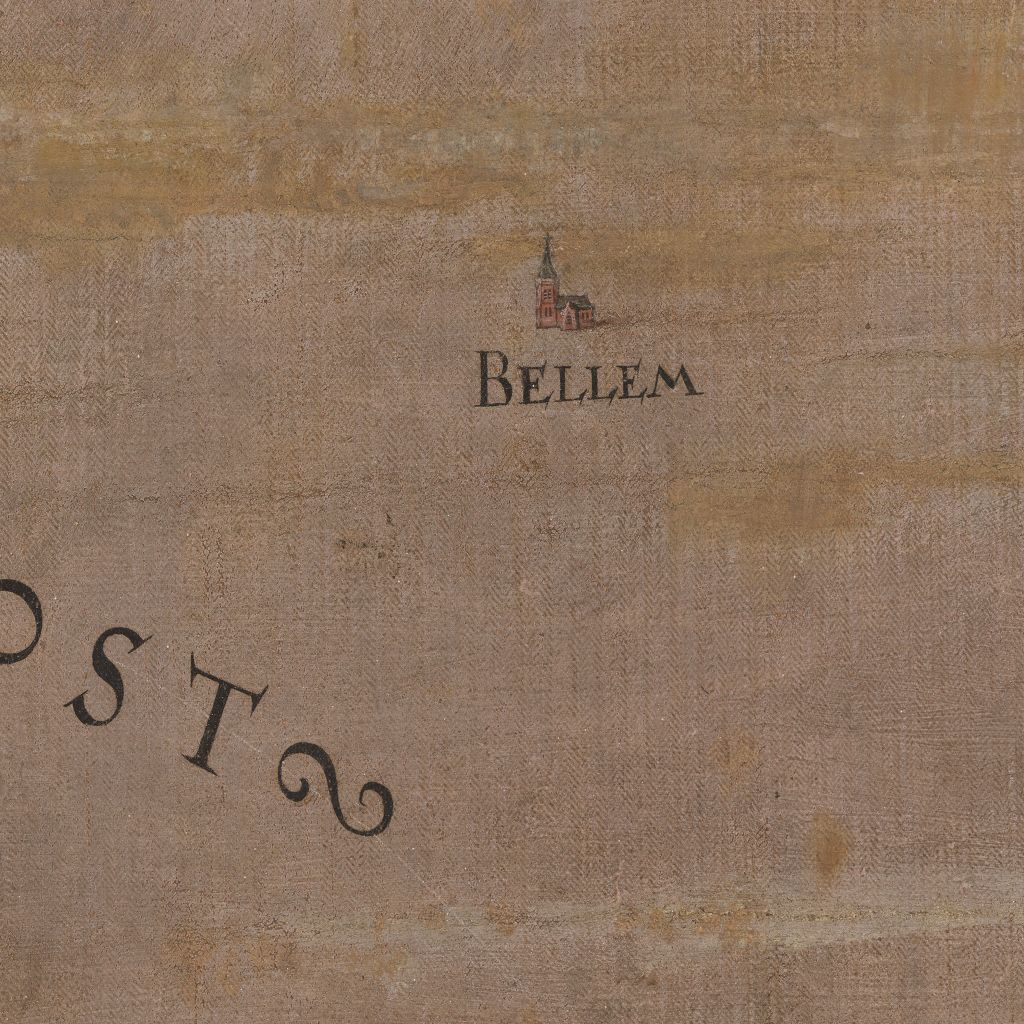 BELLEM
OST